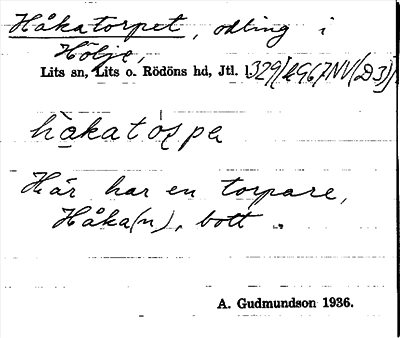 Håkatorpet, odling i
Hölje,
Lits sn, Lits o. Rödöns hd, Jtl. l.
håkatɔrpe
Här har en torpare,
Håka(n), bott.
A. Gudmundson 1936.